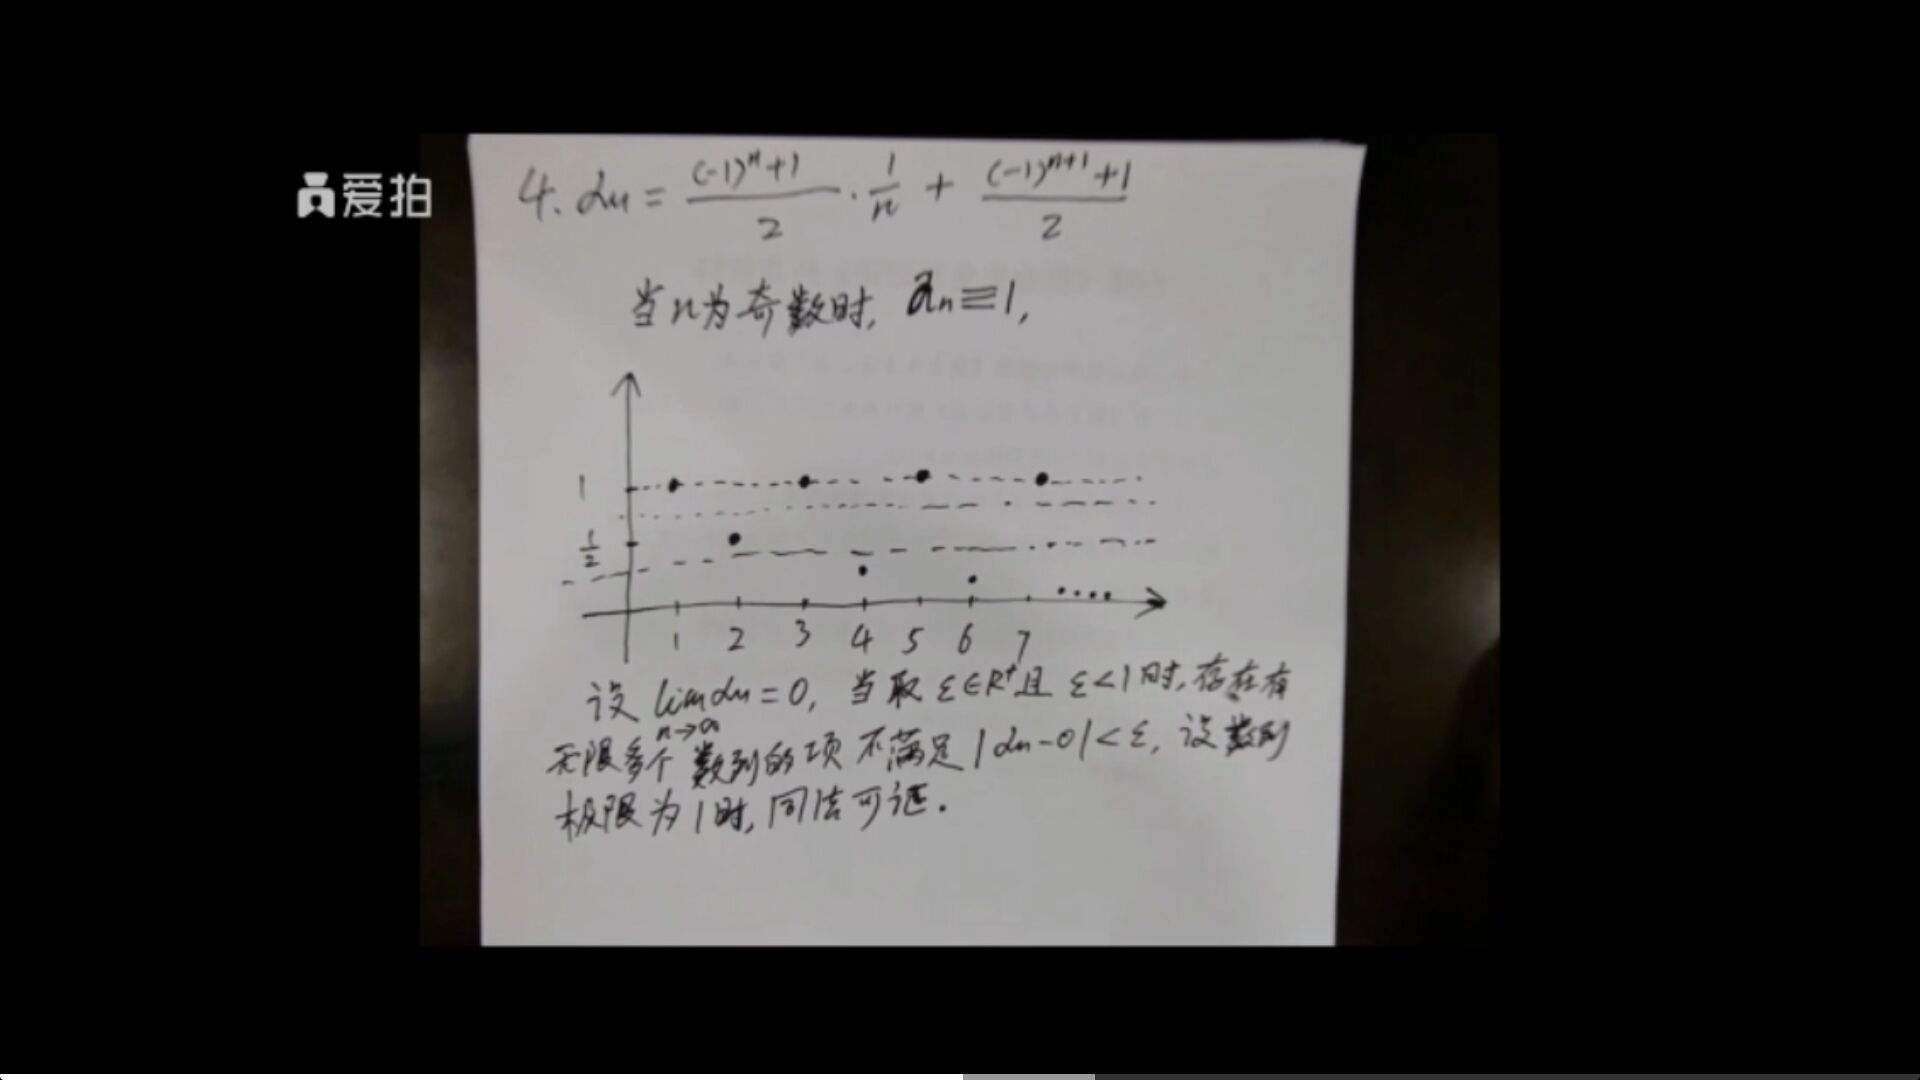 爱拍
4. αn = ((-1)^n+1)/2 · 1/n + ((-1)^(n+1)+1)/2
当n为奇数时, an≡1,
1
1/2
1 2 3 4 5 6 7
设 lim αn = 0, 当取 ε∈R⁺且 ε<1时, 存在有
n→∞
无限多个数列的项不满足|αn-0|<ε, 设数列
极限为1时, 同法可证.